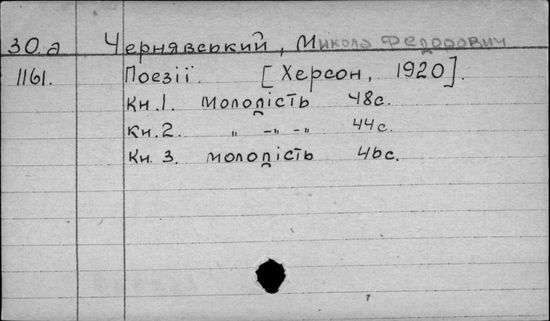 30.а Чернявський, Микола Федорович
1161. Поезії. [Херсон, 1920].
Кн. 1. Молодість 48с.
Кн. 2. „ -„- -„ 44с.
Кн. 3. Молодість 46с.